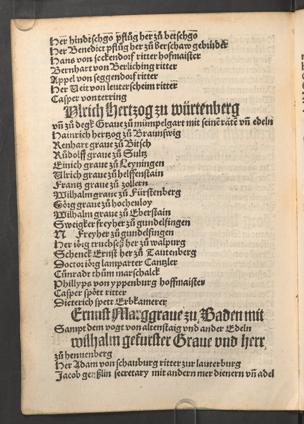 Her hindischgo pflüg her zů betschgo
Her Benedict pflüg her zů berschaw gebrüder
Hans von seckendorf ritter hofmaister
Bernhart von Berliching ritter
Appel von seggendorf ritter
Her Veit von leuterscheim ritter
Casper von terring
Ulrich Hertzog zu würtenberg
vñ zů degk Graue zů mümpelgart mit seinē räte vñ edeln
Hainrich hertzog zů Braunswig
Renhart graue zů Bitsch
Růdolff graue zů Sultz
Emich graue zů Leyningen
Ulrich graue zů helffenstain
Frantz graue zů zollern
Wilhalm graue zů Fürstenberg
Görg graue zů hochenloy
Wilhalm graue zů Eberstain
Sweigker freyher zů gundelfingen
N Freyher zů gundelfingen
Her iörg truchseß her zů walpurg
Schenck Ernst her zů Tautenberg
Doctor iörg lamparter Cantzler
Cůnradt thüm marschalck
Phillyps von yppenburg hoffmaister
Casper spött ritter
Dieterich spett Erbkamerer
Ernnst Marggraue zu Baden mit
Sampt dem vogt von altenstaig vnd ander Edeln
wilhalm gefurster Graue vnd herr
zů hennenberg
Her Adam von schauburg ritter zur lauterburg
Jacob secretary mit andern mer dienern vñ adel